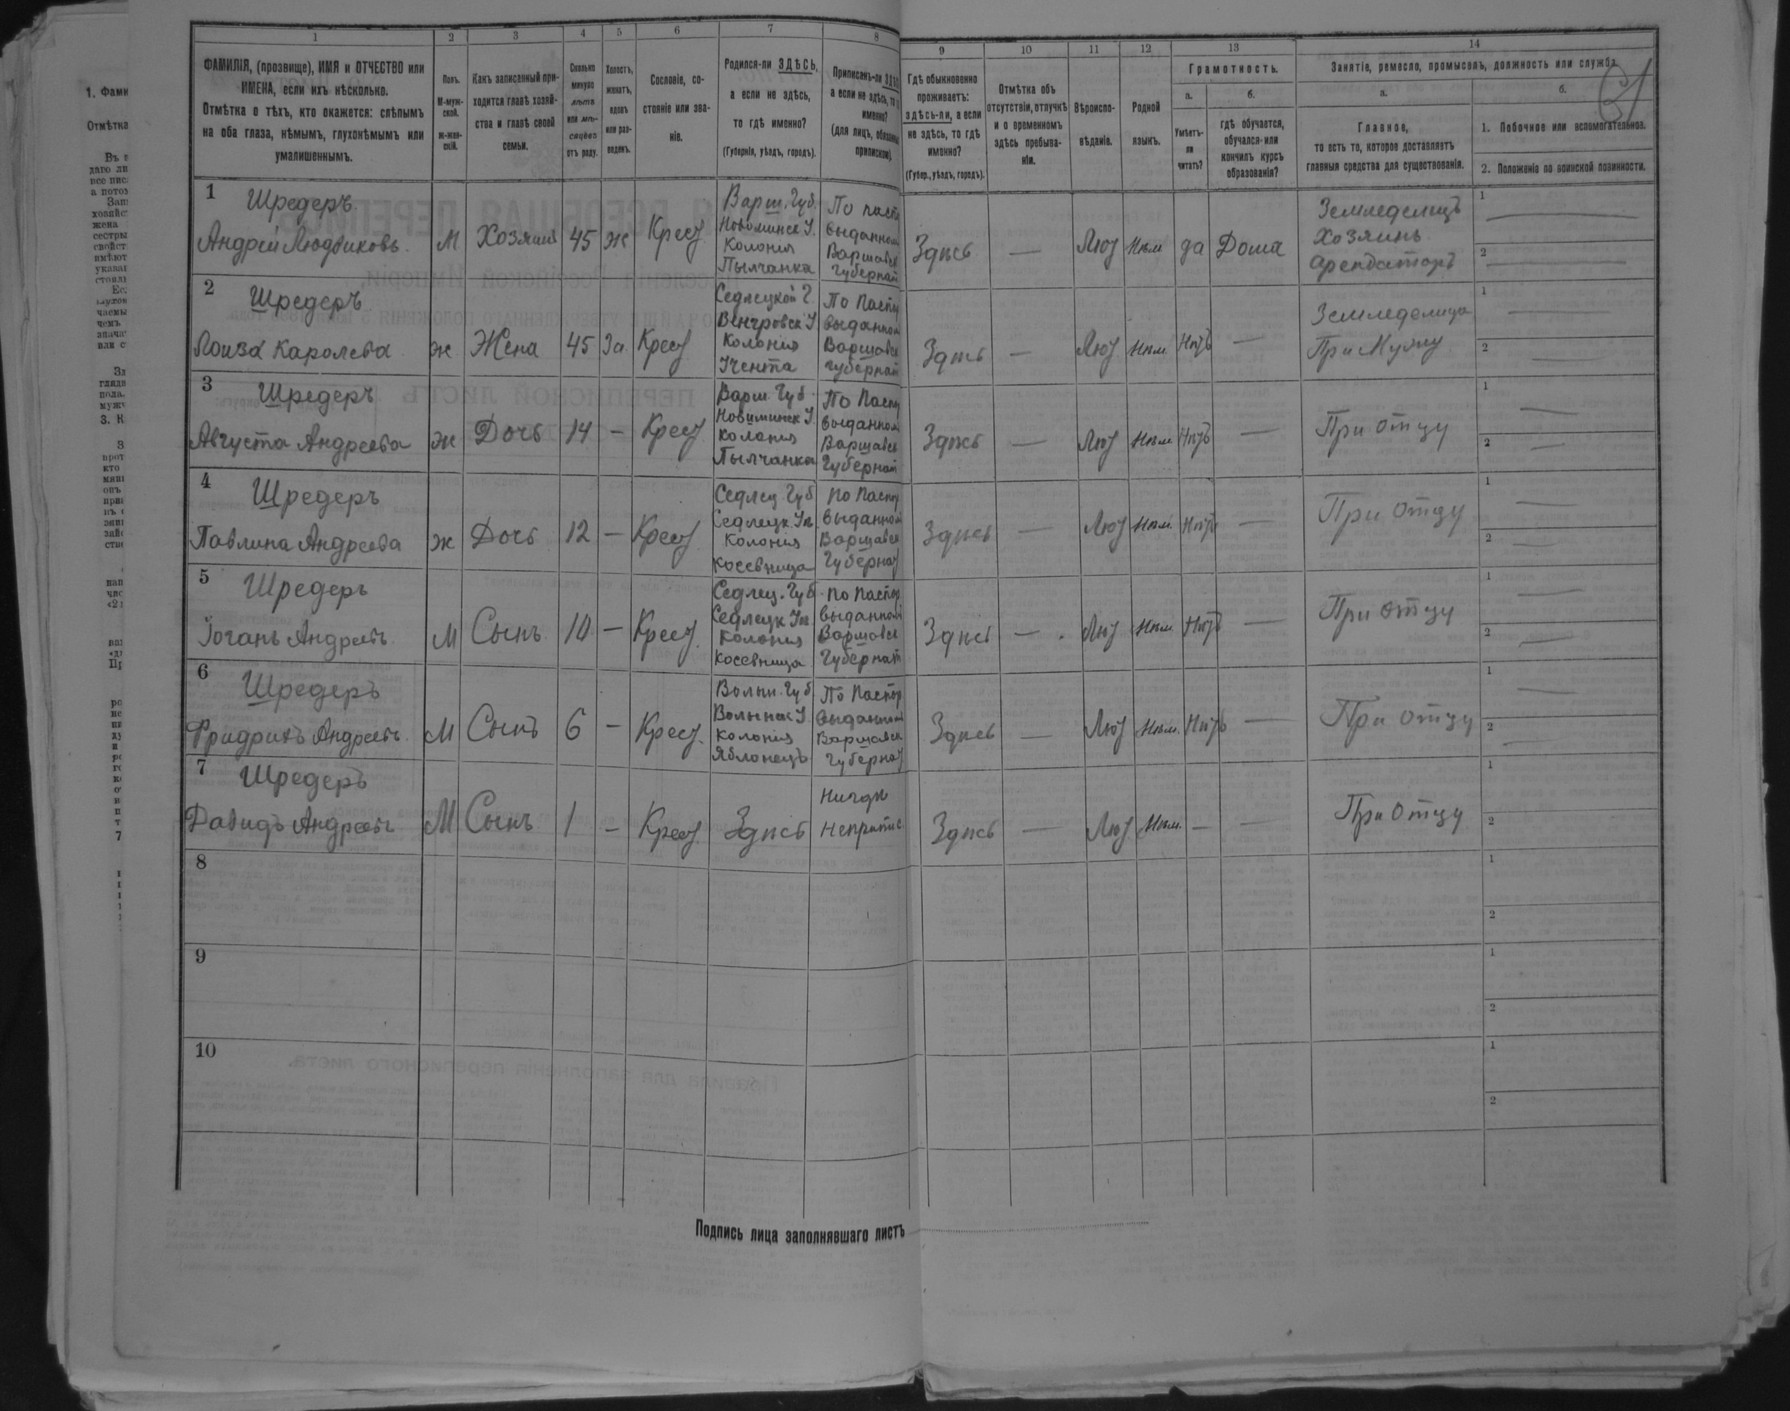 1 2 3 4 5 6 7 8 9 10 11 12 13 14
ФАМИЛІЯ, (прозвище), ИМЯ и ОТЧЕСТВО или
ИМЕНА, если ихъ нѣсколько.
Отмѣтка о тѣхъ, кто окажется: слѣпымъ
на оба глаза, нѣмымъ, глухонѣмымъ или
умалишеннымъ.
Полъ.
М-муж-
ской.
ж-жен-
скій.
Какъ записанный при-
ходится главѣ хозяй-
ства и главѣ своей
семьи.
Сколько
минуло
лѣтъ
или мѣ-
сяцевъ
отъ роду.
Холостъ,
женатъ,
вдовъ
или раз-
веденъ.
Сословіе, со-
стояніе или зва-
ніе.
Родился-ли ЗДѢСЬ,
а если не здѣсь,
то гдѣ именно?
(Губернія, уѣздъ, городъ).
Приписанъ-ли
а если не здѣсь, то
именно?
(для лицъ,
Гдѣ обыкновенно
проживаетъ:
здѣсь-ли, а если
не здѣсь, то гдѣ
именно?
(Губер., уѣздъ, городъ).
Отмѣтка объ
отсутствіи, отлучкѣ
и о временномъ
здѣсь пребыва-
ніи.
Вѣроиспо-
вѣданіе.
Родной
языкъ.
Грамотность.
а.
Умѣетъ-
ли
читать?
б.
гдѣ обучается,
обучался-или
кончилъ курсъ
образованія?
Занятіе, ремесло, промыселъ, должность или служба.
а.
Главное,
то есть то, которое доставляетъ
главныя средства для существованія.
б.
1. Побочное или вспомогательное.
2. Положеніе по воинской повинности.
1 Шредеръ
Андрей Людвиковъ
М Хозяинъ 45 ж Крест
Варш. Губ.
Новоминск У.
Колонія
Пылчанка
По пасп
выданном
Варшавск
губернат
Здѣсь — Лют Нѣм да Дома
Земледелецъ
Хозяинъ
Арендаторъ
1
2
2 Шредеръ
Лоиза Каролева
ж Жена 45 За Крест
Седлецкой Г.
Венгровск У
Колонія
По Паспо
выданном
Варшавск
губернат
Здѣсь — Лют Нѣм Нѣтъ —
Земледелица
При Мужу
1
2
3 Шредеръ
Августа Андреева
ж Дочь 14 — Крест
Варш. Губ.
Новоминск У.
Колонія
Пылчанка
По Паспо
выданном
Варшавск
Губернат
Здѣсь — Лют Нѣм Нѣтъ —
При отцу
1
2
4 Шредеръ
Павлина Андреева
ж Дочь 12 — Крест
Седлец Губ
Седлецк Уѣ
Колонія
Косевница
По Паспор
выданном
Варшавск
Губернат
Здѣсь — Лют Нѣм Нѣтъ —
При отцу
1
2
5 Шредеръ
Іоганъ Андреевъ
М Сынъ 10 — Крест
Седлец. Губ
Седлецк Уѣ
Колонія
Косевница
По Паспор
выданном
Варшавск
Губернат
Здѣсь — Лют Нѣм Нѣтъ —
При отцу
1
2
6 Шредеръ
Фридрихъ Андреевъ
М Сынъ 6 — Крест
Волын. Губ
Колонія
Яблонецъ
По Паспор
выданном
Варшавск
Губернат
Здѣсь — Лют Нѣм. Нѣтъ —
При отцу
1
2
7 Шредеръ
Давидъ Андреевъ
М Сынъ 1 — Крест
Здѣсь
Нигдѣ
Неприпис
Здѣсь — Лют Нѣм. — —
При Отцу
1
2
8
1
2
9
1
2
10
1
2
Подпись лица заполнявшаго листъ